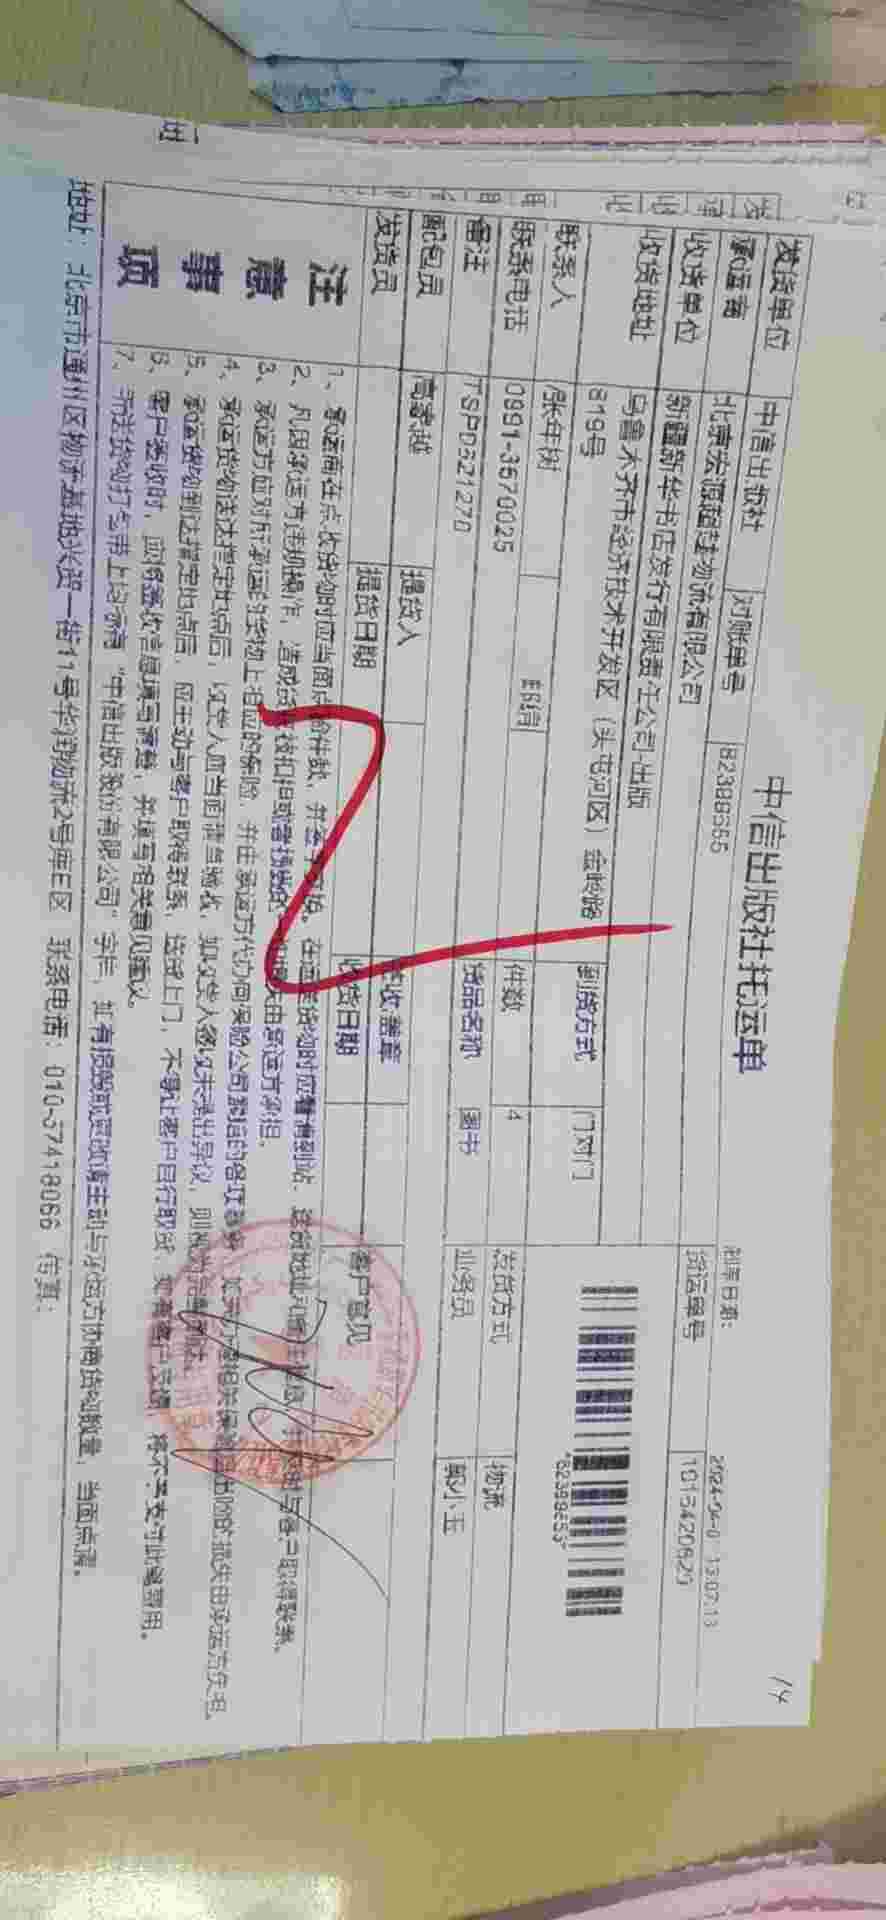 中信出版社托运单
制单日期:
13:07:13
14
发货单位 中信出版社 对账单号 82388655 货运单号 1016420620
承运商 北京宏源超达物流有限公司
收货单位 新疆新华书店发行有限责任公司-出版
收货地址 乌鲁木齐市经济技术开发区（头屯河区）金岭路
819号
联系人 张年树 到货方式 门对门
联系电话 0991-3570025 邮编 件数 4 发货方式 物流
备注 TSP0521270 货品名称 图书 业务员 郭小玉
配包员 高家越 提货人 签收盖章 客户意见
发货员 提货日期 收货日期
注意事项
1、承运商在点收货物时应当面点验件数，并签字交换。在运送货物时应看清到站、送货地址和
2、凡因承运方违规操作，造成货
3、承运方应对所承运的货物上相应的保险，并由承运方代办向保险公司索赔的各项事务
4、承运货物送达指定地点后，收货人应当面清点验收，如收货人签收未提出异议，则视为完整到达。
5、承运货物到达指定地点后，应主动与客户取得联系，送货上门，不得让客户自行取货
6、客户签收时，应将签收信息填写清楚，并填写相关意见建议。
7、所送货物打包带上均示有“中信出版股份有限公司”字样，如有损毁或更改请主动与承运方协商货物数量，当面点清。
地址：北京市通州区物流基地兴贸一街11号华润物流2号库E区 联系电话：010-57418066 传真：